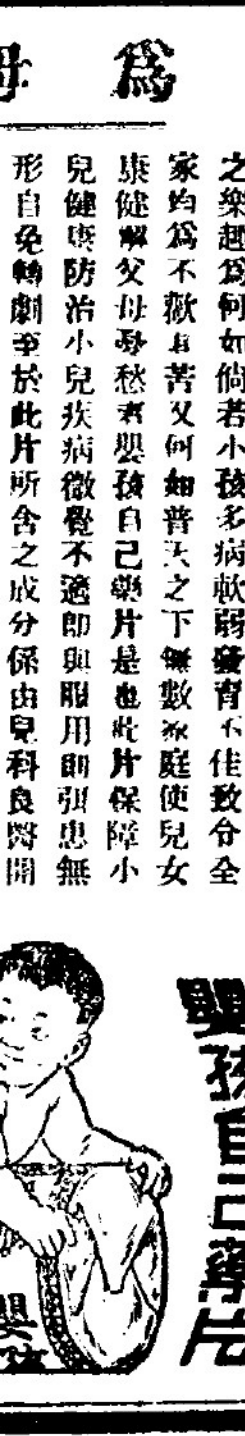 爲母
之樂趣爲何如倘若小孩多病軟弱發育不佳致令全
家均爲不歡其苦又何如普天之下無數家庭使兒女
康健解父母憂愁者嬰孩自己藥片是也此片保障小
兒健康防治小兒疾病微覺不適即與服用則弭患無
形自免轉劇至於此片所含之成分係由兒科良醫開
嬰孩自己藥片
嬰孩